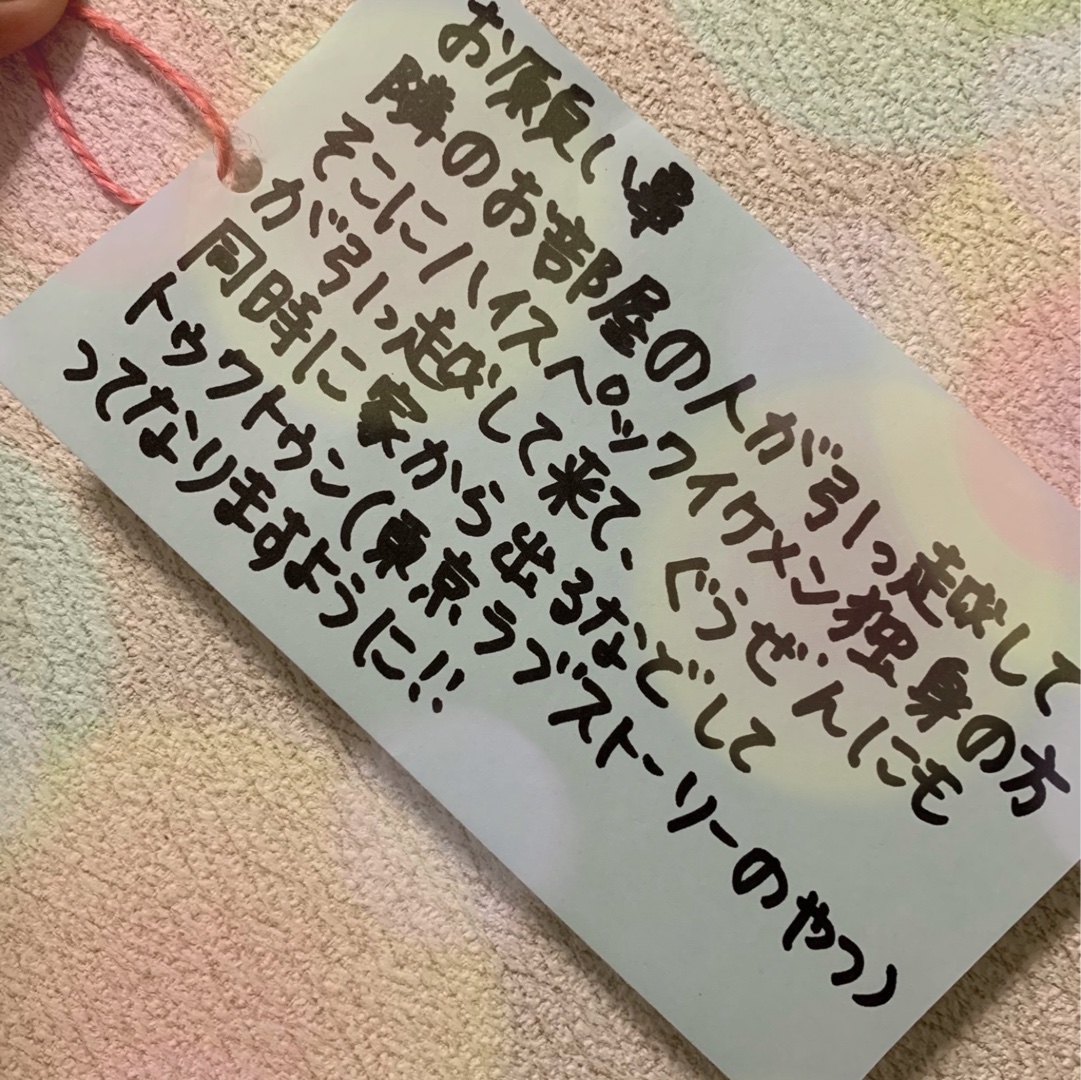 お願い事
隣のお部屋の人が引っ越して
そこにハイスペックイケメン独身の方
が引っ越して来て、ぐうぜんにも
同時に家から出るなどして
トゥクトゥン(東京ラブストーリーのやつ)
ってなりますように!!